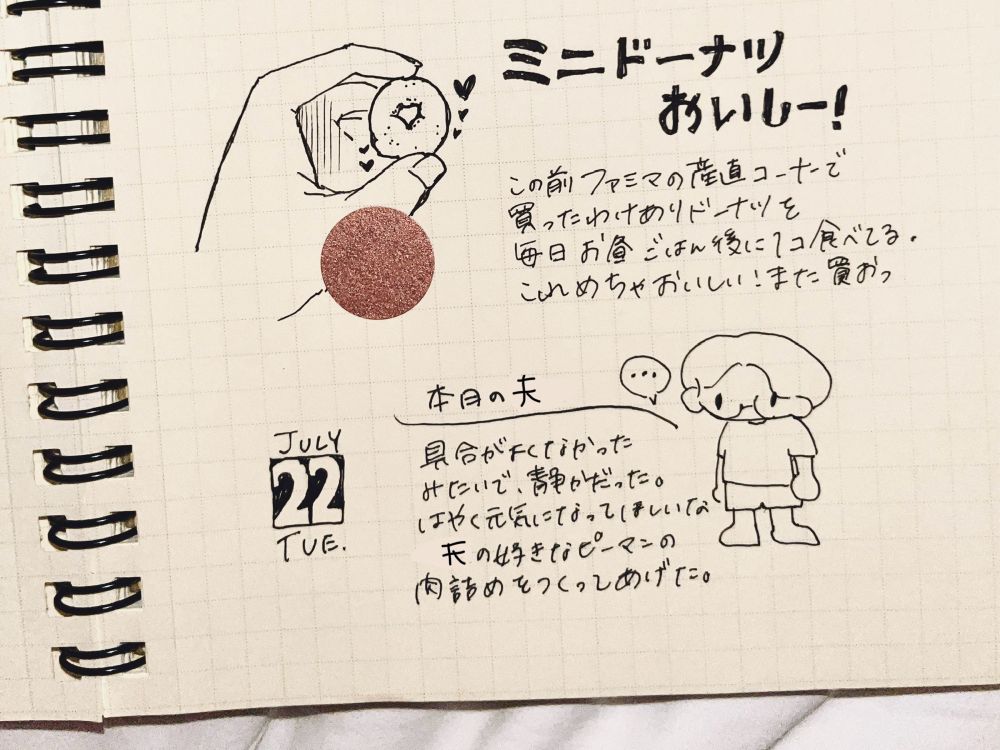 ミニドーナツ
おいしー!
この前ファミマの産直コーナーで
買ったわけありドーナツを
毎日お昼ごはん後に1コ食べてる。
これめちゃおいしい!また買おっ
...
本日の夫
具合がよくなかった
みたいで、静かだった。
はやく元気になってほしいな
夫の好きなピーマンの
肉詰めをつくってあげた。
JULY
22
TUE.